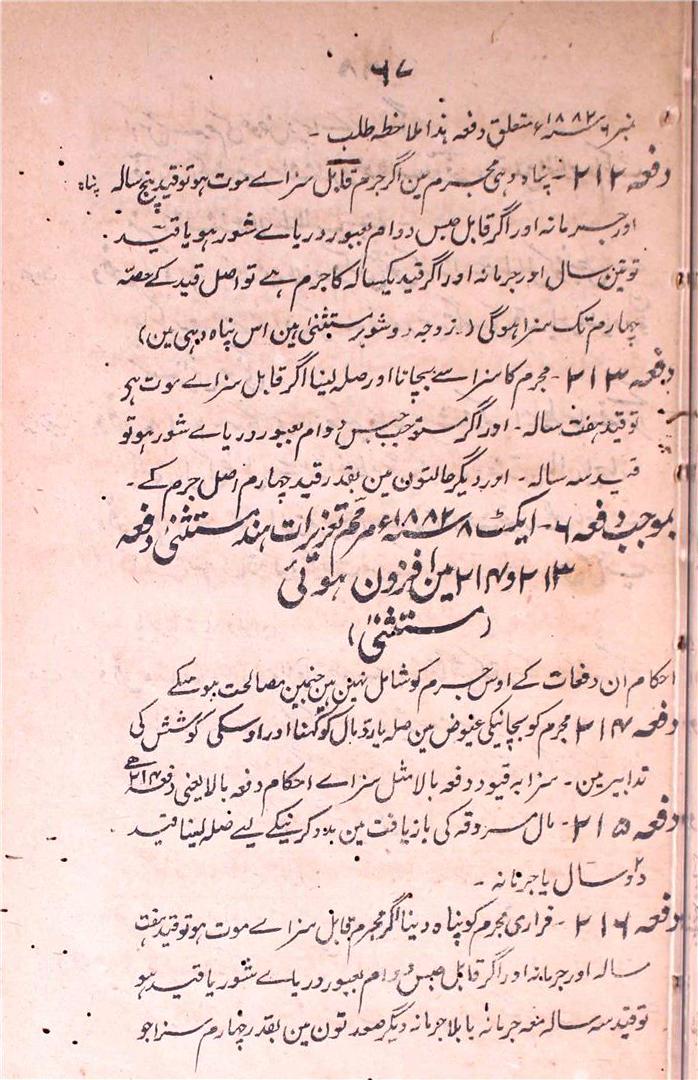 ۶۷
نمبر ۶ ۱۸۸۲ء متعلق دفعہ ہذا ملاحظہ طلب ۔
دفعہ ۲۱۲ ۔ پناہ دہی مجرم مین اگر جرم قابل سزاے موت ہو تو قید پنج سالہ پناہ
اور جرمانہ اور اگر قابل حبس دوام بعبور دریاے شور ہو یا قید
تو تین سال اور جرمانہ اور اگر قید یکسالہ کا جرم ہے تو اصل قید کے حصّہ
چہارم تک سزا ہوگی (زوجہ و شوہر مستثنیٰ ہین اس پناہ دہی مین)
دفعہ ۲۱۳ ۔ مجرم کا سزا سے بچانا اور صلہ لینا اگر قابل سزاے موت ہو
تو قید ہفت سالہ ۔ اور اگر مستوجب حبس دوام بعبور دریاے شور ہو تو
قید سہ سالہ ۔ اور دیگر حالتون مین بقدر قید چہارم اصل جرم کے ۔
بموجب دفعہ ۶ ۔ ایکٹ ۸ ۱۸۸۲ء مرمم تعزیرات ہند مستثنیٰ دفعہ
۲۱۳ و ۲۱۴ مین افزون ہوئی
(مستثنیٰ)
احکام ان دفعات کے اوس جرم کو شامل نہین ہین جنمین مصالحت ہو سکے
دفعہ ۲۱۴ مجرم کو بچانیکی عیوض مین صلہ یا رد مال کو کہنا اور اوسکی کوشش کی
تدابیر مین ۔ سزا بہ قیود دفعہ بالا مثل سزاے احکام دفعہ بالا یعنی دفعہ ۲۱۳ ہے
دفعہ ۲۱۵ ۔ مال مسروقہ کی بازیافت مین مدد کرنیکے لیے صلہ لینا قید
دو سال یا جرمانہ ۔
دفعہ ۲۱۶ ۔ فراری مجرم کو پناہ دینا اگر مجرم قابل سزاے موت ہو تو قید ہفت
سالہ اور جرمانہ اور اگر قابل حبس دوام بعبور دریاے شور یا قید ہو
تو قید سہ سالہ معہ جرمانہ یا بلا جرمانہ دیگر صورتون مین بقدر چہارم سزا جو